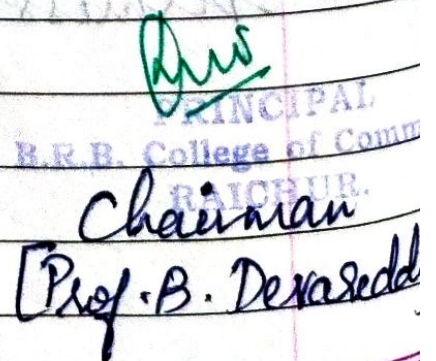 PRINCIPAL
B.R.B. College of Comm
RAICHUR.
Chairman
[Prof. B. Devaredd